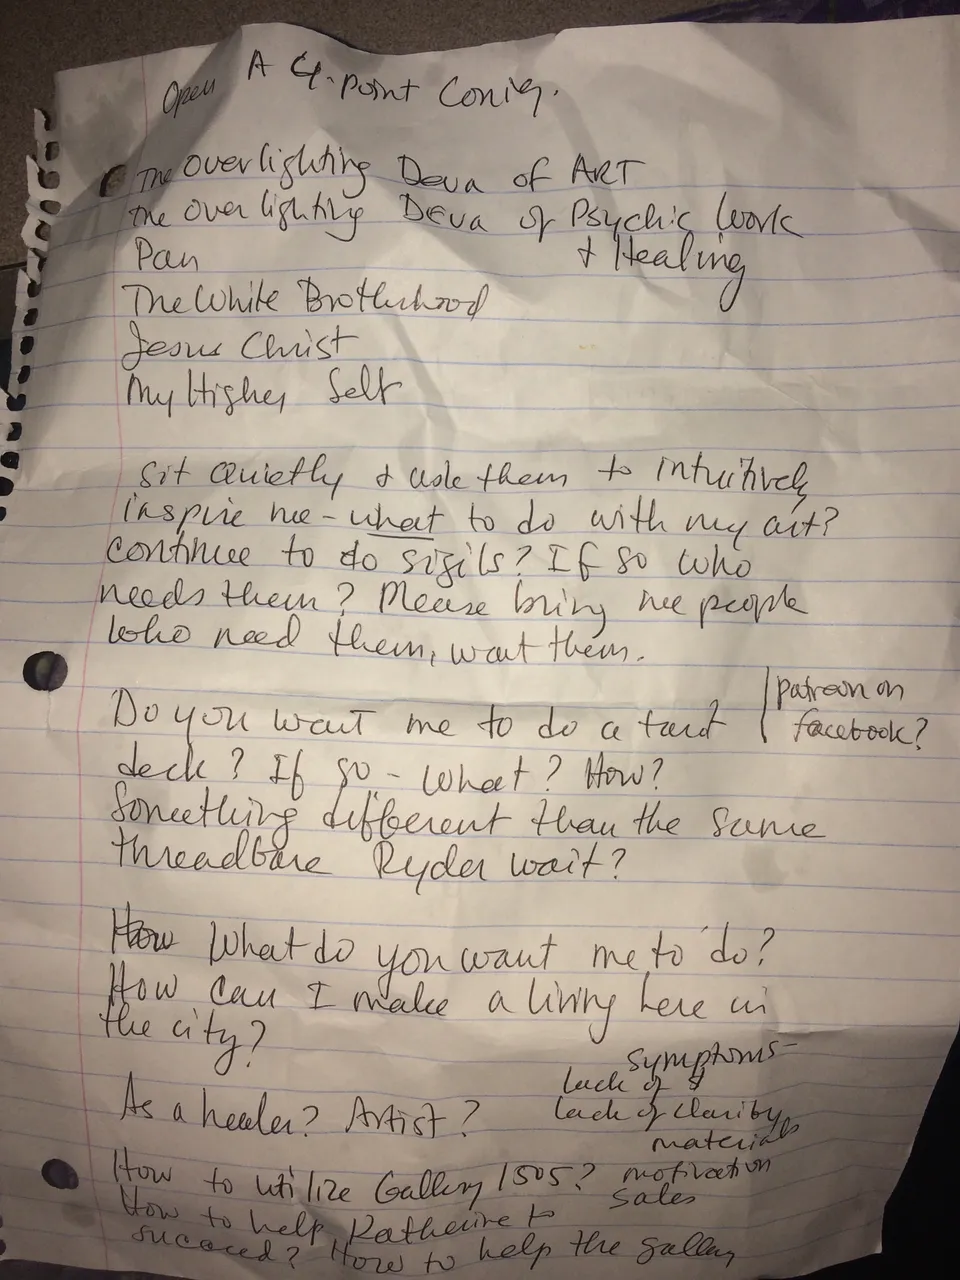 Open A 4-point Conig.
The Overlighting Deva of ART
the Overlighting Deva of Psychic Work
& Healing
Pan
The White Brotherhood
Jesus Christ
My Higher Self
Sit quietly & ask them to intuitively
inspire me - what to do with my art?
continue to do sigils? If so who
needs them? Please bring me people
who need them, want them.
Do you want me to do a tarot
deck? If so - What? How?
Something different than the same
threadbare Ryder wait?
patreon on
facebook?
How What do you want me to do?
How can I make a living here in
the city?
As a healer? Artist?
Symptoms-
lack of $
lack of clarity
materials
motivation
sales
How to utilize Gallery 1505?
How to help Katherine to
succeed? How to help the gallery